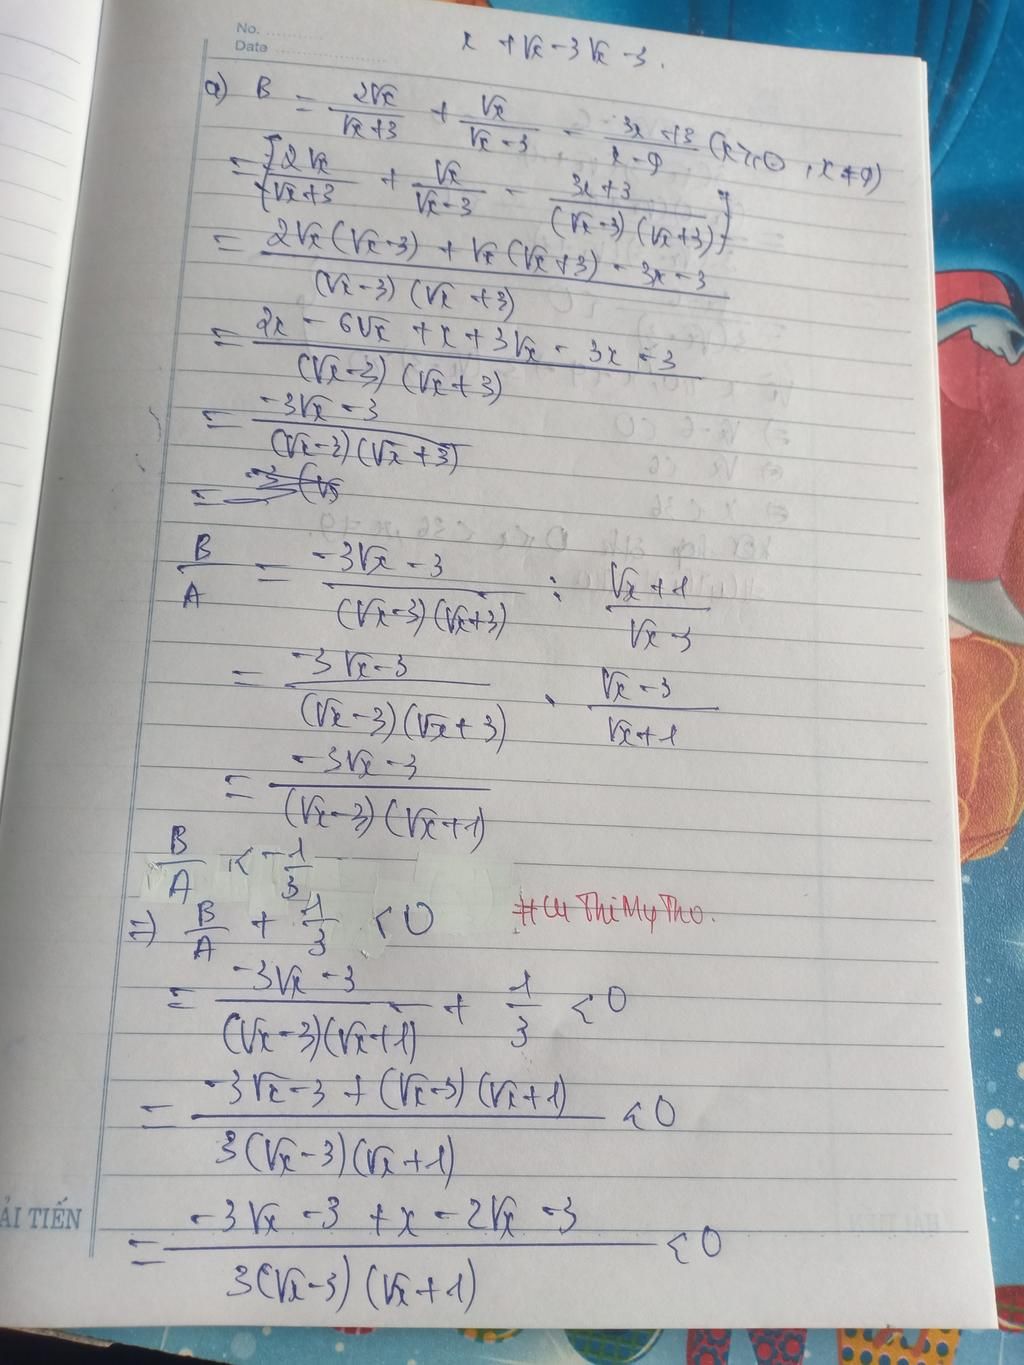 No.
Date
x + √x - 3√x - 3.
a) B = 2√x/(√x+3) + √x/(√x-3) - (3x+3)/(x-9) (x≥0, x≠9)
= [2√x/(√x+3) + √x/(√x-3) - (3x+3)/((√x-3)(√x+3))]
= (2√x(√x-3) + √x(√x+3) - 3x-3)/((√x-3)(√x+3))
= (2x - 6√x + x + 3√x - 3x - 3)/((√x-3)(√x+3))
= (-3√x - 3)/((√x-3)(√x+3))
=
B/A = (-3√x-3)/((√x-3)(√x+3)) : (√x+1)/(√x-3)
= (-3√x-3)/((√x-3)(√x+3)) . (√x-3)/(√x+1)
= (-3√x-3)/((√x-3)(√x+1))
B/A < -1/3
=) B/A + 1/3 < 0
#Cu Thi My Tho.
= (-3√x-3)/((√x-3)(√x+1)) + 1/3 < 0
= (-3√x-3+(√x-3)(√x+1))/(3(√x-3)(√x+1)) < 0
= (-3√x-3+x-2√x-3)/(3(√x-3)(√x+1)) < 0
ẢI TIẾN